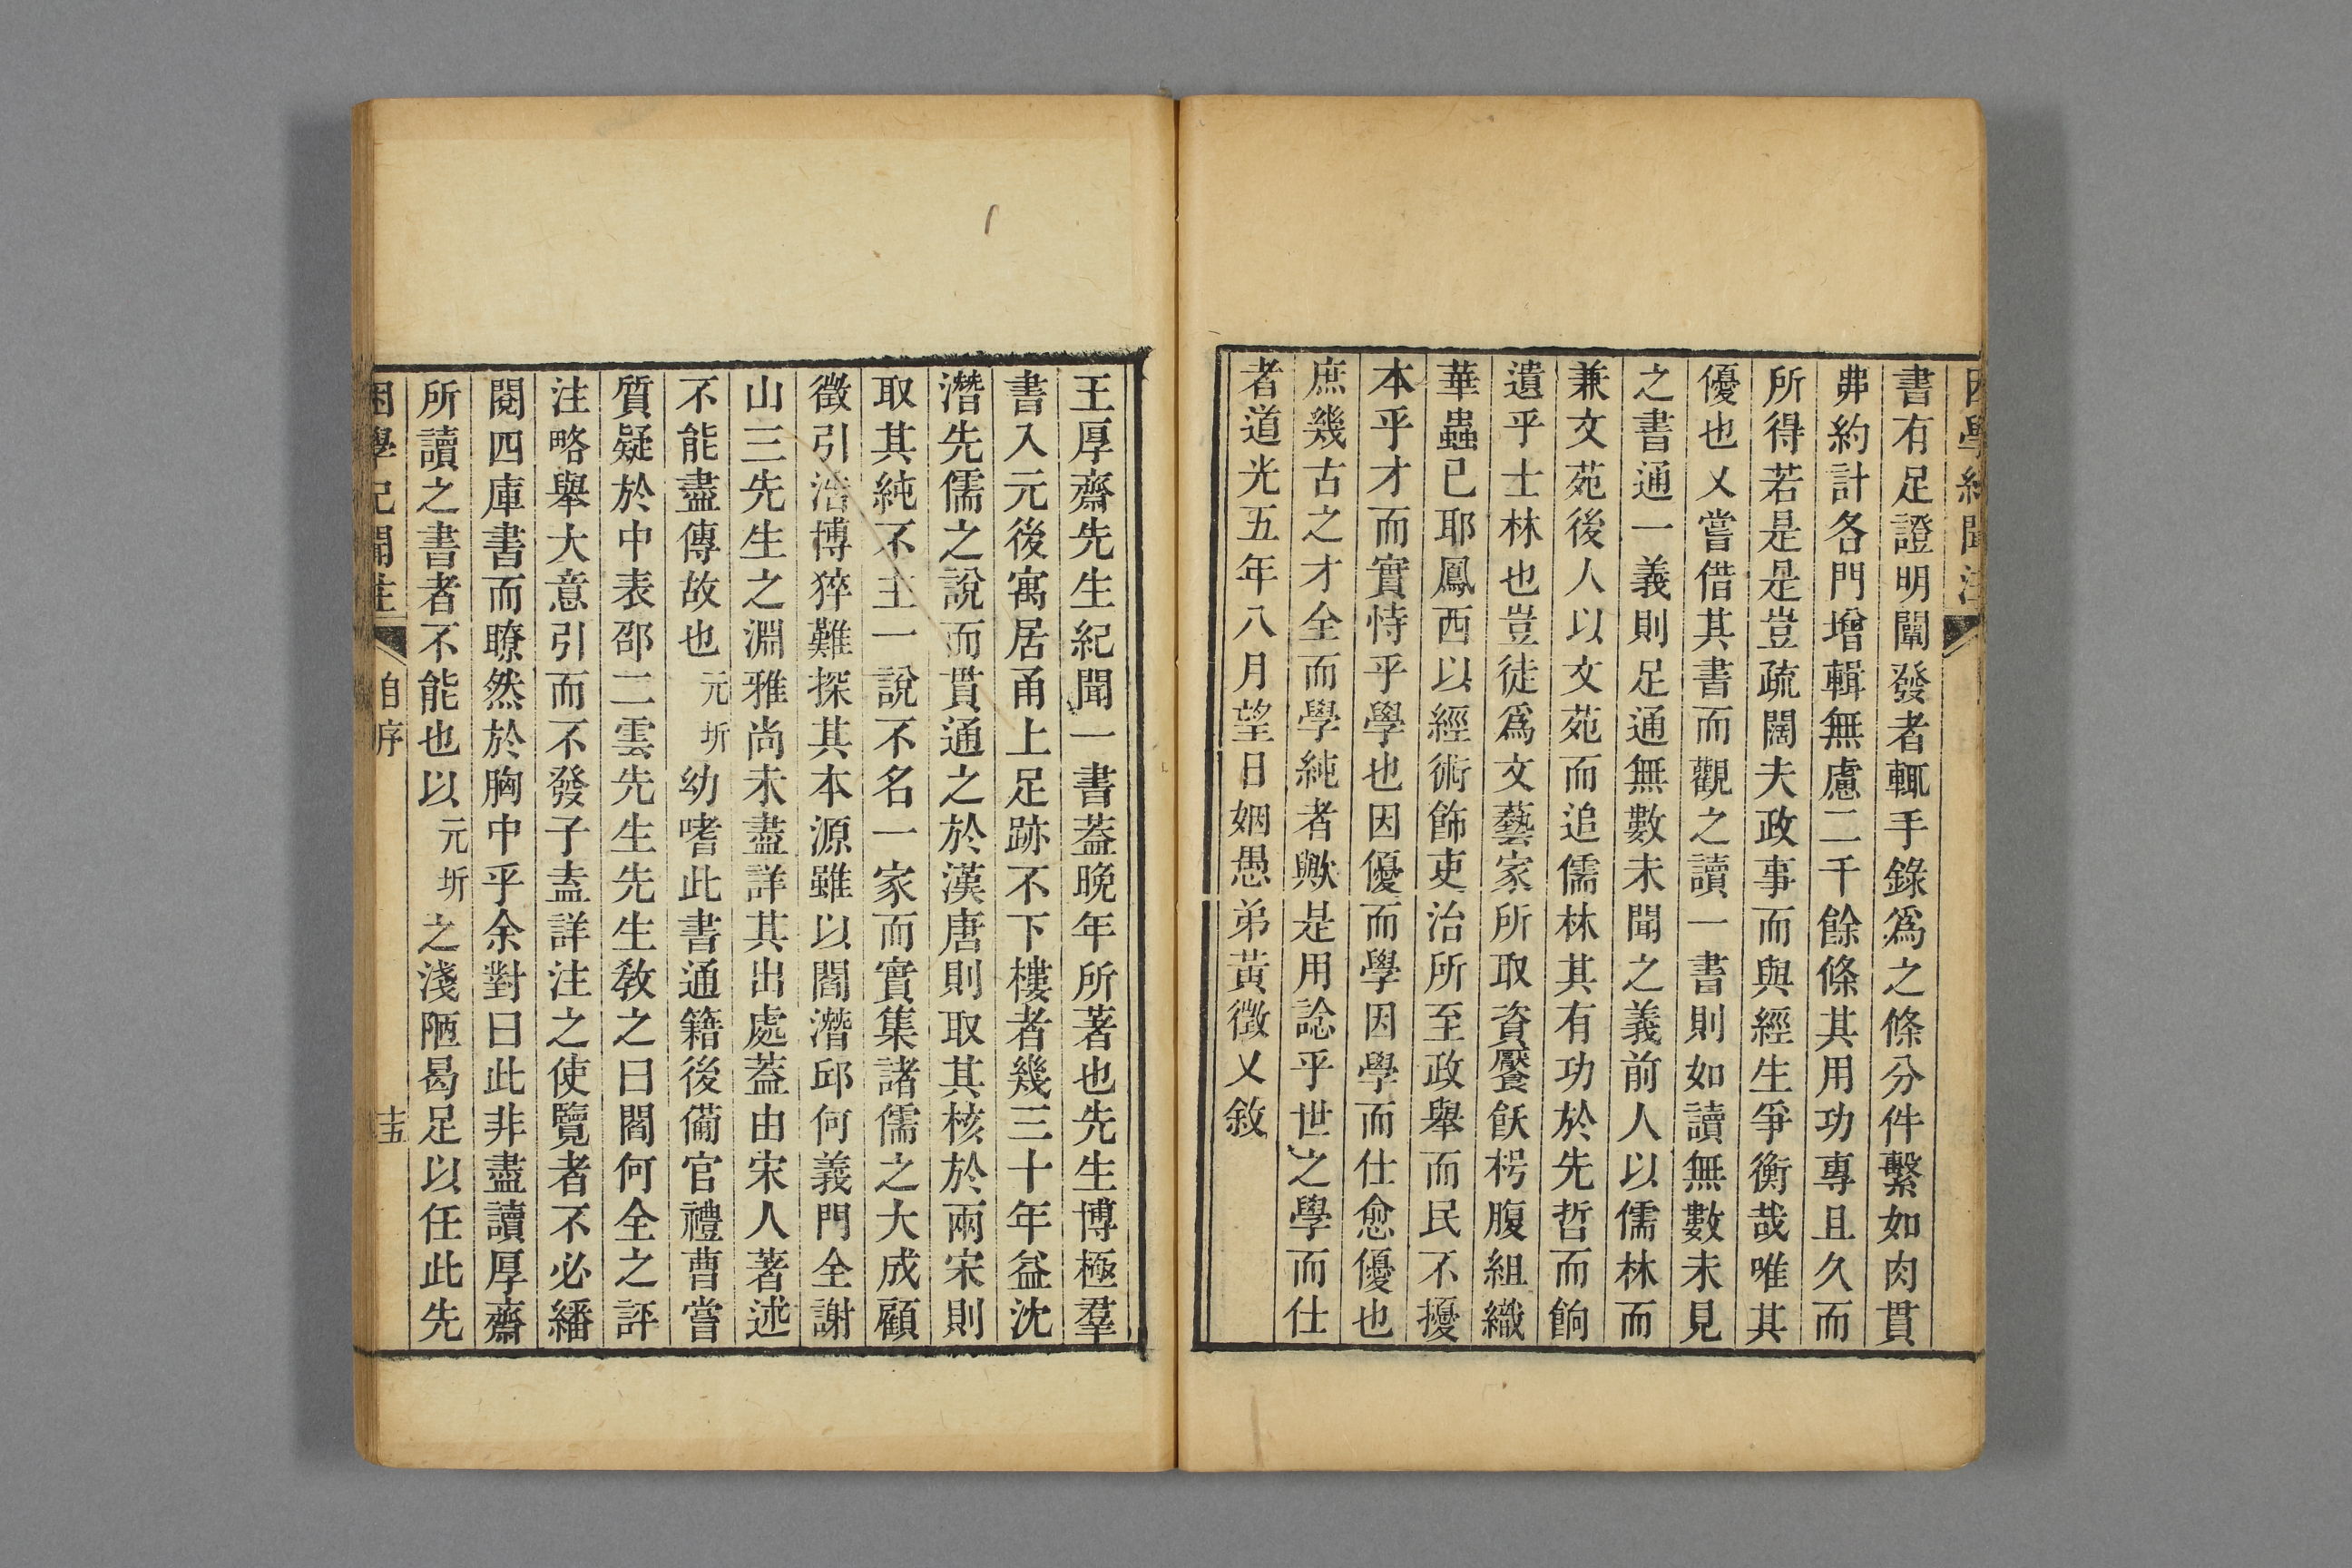 困學紀聞注
書有足證明闡發者輒手錄爲之條分件繫如肉貫
丳約計各門增輯無慮二千餘條其用功專且久而
所得若是是豈疏闊夫政事而與經生爭衡哉唯其
優也又嘗借其書而觀之讀一書則如讀無數未見
之書通一義則足通無數未聞之義前人以儒林而
兼文苑後人以文苑而追儒林其有功於先哲而餉
遺乎士林也豈徒爲文藝家所取資饜飫枵腹組織
華蟲已耶鳳西以經術飾吏治所至政舉而民不擾
本乎才而實恃乎學也因優而學因學而仕愈優也
庶幾古之才全而學純者歟是用諗乎世之學而仕
者道光五年八月望日姻愚弟黃徵乂敘
王厚齋先生紀聞一書蓋晚年所著也先生博極羣
書入元後寓居甬上足跡不下樓者幾三十年益沈
潛先儒之說而貫通之於漢唐則取其核於兩宋則
取其純不主一說不名一家而實集諸儒之大成顧
徵引浩博猝難探其本源雖以閻潛邱何義門全謝
山三先生之淵雅尚未盡詳其出處蓋由宋人著述
不能盡傳故也元圻幼嗜此書通籍後備官禮曹嘗
質疑於中表邵二雲先生先生敎之曰閻何全之評
注略舉大意引而不發子盍詳注之使覽者不必繙
閱四庫書而瞭然於胸中乎余對曰此非盡讀厚齋
所讀之書者不能也以元圻之淺陋曷足以任此先
困學紀聞注
自序
十五